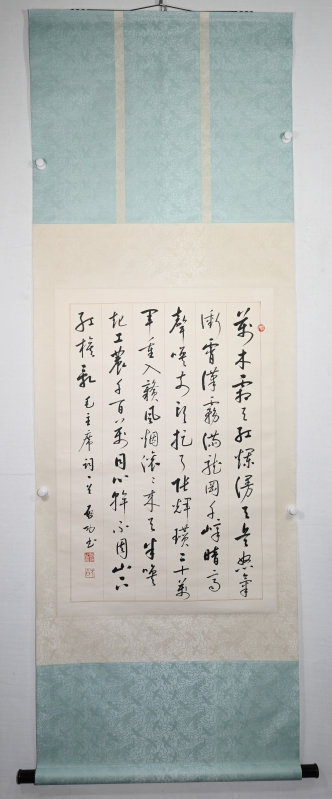 萬木霜天紅爛漫天兵怒氣
衝霄漢霧滿龍岡千嶂暗齊
聲喚前頭捉了張輝瓚二十萬
軍重入贛風烟滾〻來天半喚
起工農千百萬同心幹不周山下
紅旗亂 毛主席詞一首 啟功書